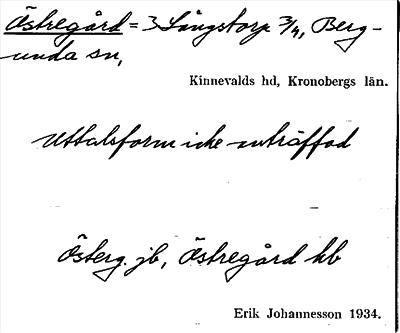 Östregård = 3 Långstorp 3/4, Berg-
unda sn,
Kinnevalds hd, Kronobergs län.
Uttalsform icke anträffad
Österg. jb, Östregård kb
Erik Johannesson 1934.